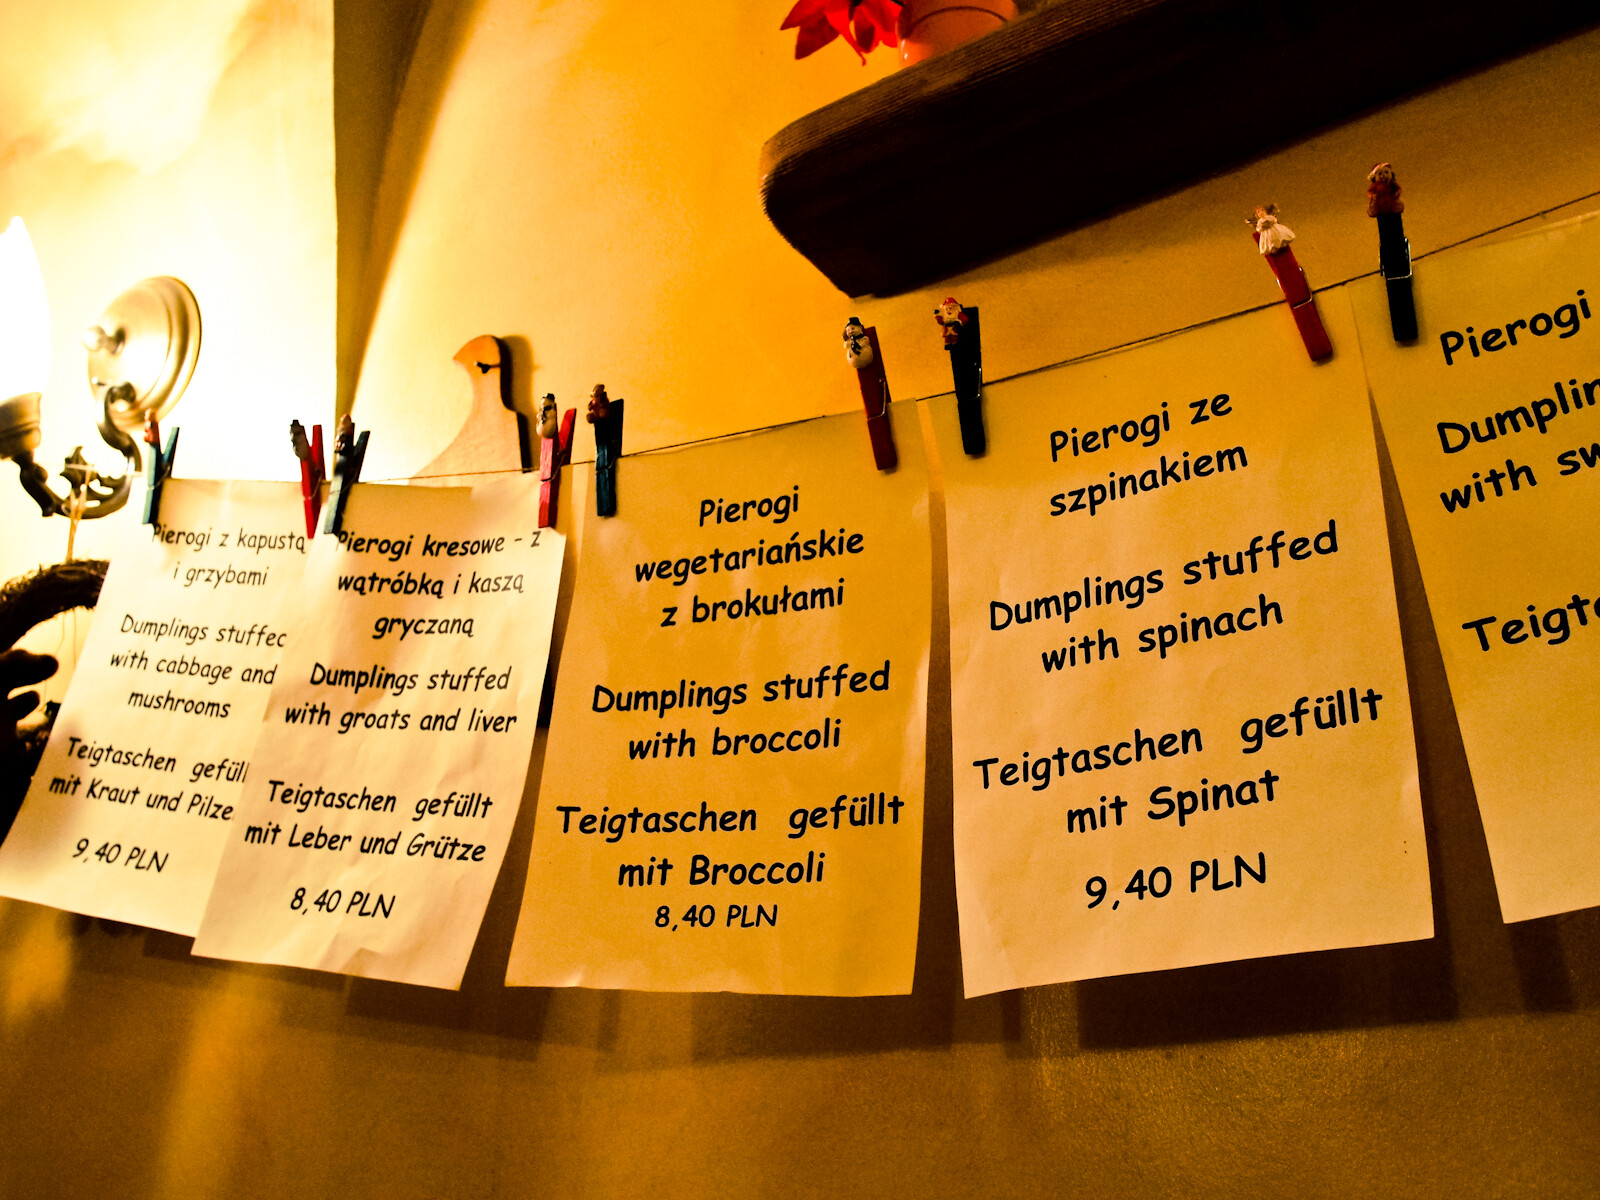 Pierogi z kapustą
i grzybami
Dumplings stuffec
with cabbage and
mushrooms
Teigtaschen gefüll
mit Kraut und Pilze
9,40 PLN
Pierogi kresowe - z
wątróbką i kaszą
gryczaną
Dumplings stuffed
with groats and liver
Teigtaschen gefüllt
mit Leber und Grütze
8,40 PLN
Pierogi
wegetariańskie
z brokułami
Dumplings stuffed
with broccoli
Teigtaschen gefüllt
mit Broccoli
8,40 PLN
Pierogi ze
szpinakiem
Dumplings stuffed
with spinach
Teigtaschen gefüllt
mit Spinat
9,40 PLN
Pierogi
Dumplin
with sw
Teigt